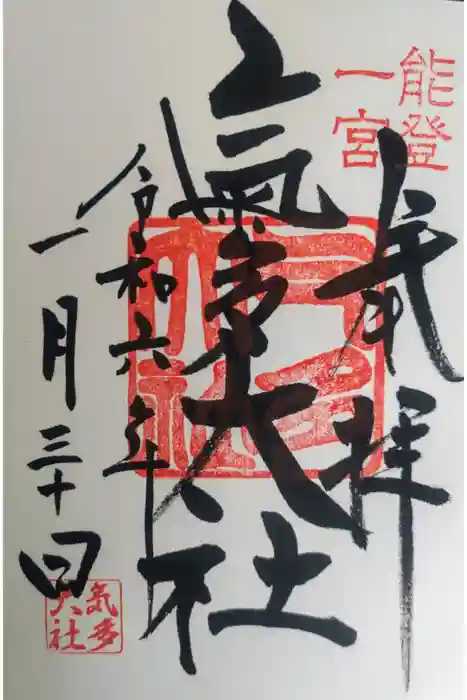 能登
一宮
奉拝
氣多大社
令和六年
一月三十日
氣多
大社